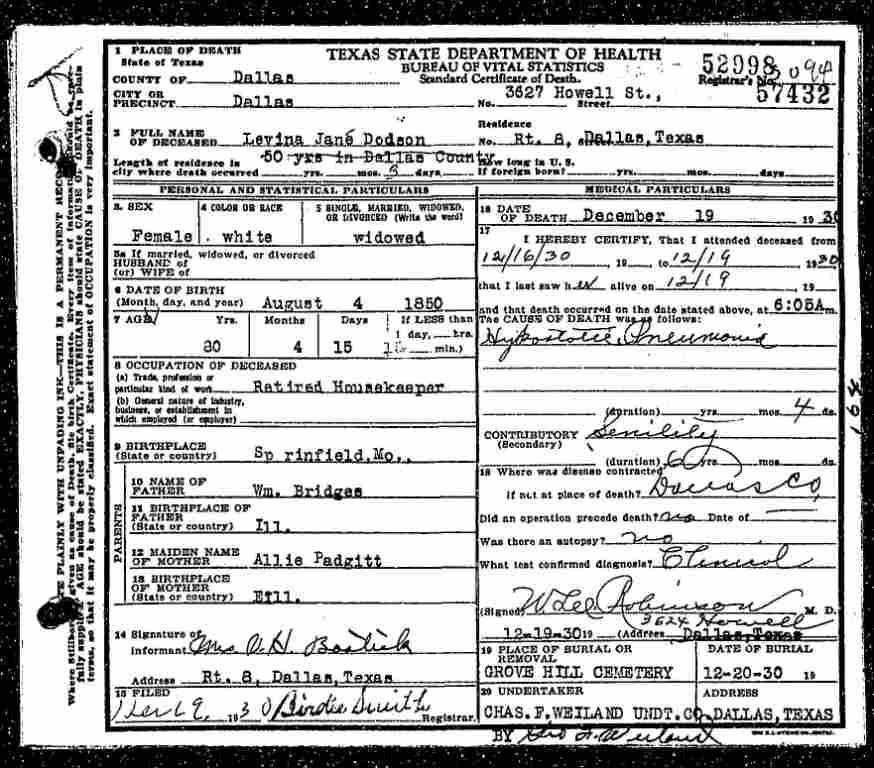 1 PLACE OF DEATH
State of Texas
COUNTY OF Dallas
CITY OR PRECINCT Dallas
TEXAS STATE DEPARTMENT OF HEALTH
BUREAU OF VITAL STATISTICS
Standard Certificate of Death.
52998
Registrar's No. 3094
57432
No. 3627 Howell St., Street
2 FULL NAME OF DECEASED Levina Jane Dodson
Residence No. Rt. 8, Street Dallas, Texas
Length of residence in city where death occurred 50 yrs in Dallas County yrs. mos. 3 days
How long in U. S. If foreign born? yrs. mos. days
PERSONAL AND STATISTICAL PARTICULARS
3. SEX Female
4 COLOR OR RACE white
5 SINGLE, MARRIED, WIDOWED, OR DIVORCED (Write the word) widowed
5a If married, widowed, or divorced
HUSBAND of
(or) WIFE of
6 DATE OF BIRTH
(Month, day, and year) August 4 1850
7 AGE Yrs. Months Days If LESS than
1 day, hrs.
min.)
80 4 15
8 OCCUPATION OF DECEASED
(a) Trade, profession or particular kind of work Retired Housekeeper
(b) General nature of industry, business, or establishment in which employed (or employer)
9 BIRTHPLACE
(State or country) Sp rinfield, Mo.,
PARENTS
10 NAME OF FATHER Wm. Bridges
11 BIRTHPLACE OF FATHER
(State or country) Ill.
12 MAIDEN NAME OF MOTHER Allie Padgitt
13 BIRTHPLACE OF MOTHER
(State or country) Eill.
14 Signature of Informant Mrs O. H. Bostick
Address Rt. 8, Dallas, Texas
15 FILED Dec 19, 1930 Birdie Smith Registrar.
MEDICAL PARTICULARS
16 DATE OF DEATH December 19 1930
17
I HEREBY CERTIFY, That I attended deceased from
12/16/30, 19 to 12/19 1930
that I last saw her alive on 12/19, 19
and that death occurred on the date stated above, at 6:05A m.
The CAUSE OF DEATH was as follows:
Hypostatic Pneumonia
(duration) yrs. mos. 4 ds.
CONTRIBUTORY Senility
(Secondary)
(duration) 6 yrs mos. ds.
18 Where was disease contracted
If not at place of death? Dallas Co,
Did an operation precede death? no Date of
Was there an autopsy? no
What test confirmed diagnosis? Clinical
(Signed) W Lee Robinson M. D.
3624 Howell
12-19-30 19 (Address Dallas, Texas
19 PLACE OF BURIAL OR REMOVAL
GROVE HILL CEMETERY
DATE OF BURIAL
12-20-30 19
20 UNDERTAKER
CHAS. F. WEILAND UNDT. CO.
ADDRESS
DALLAS, TEXAS
BY Geo F. Weiland